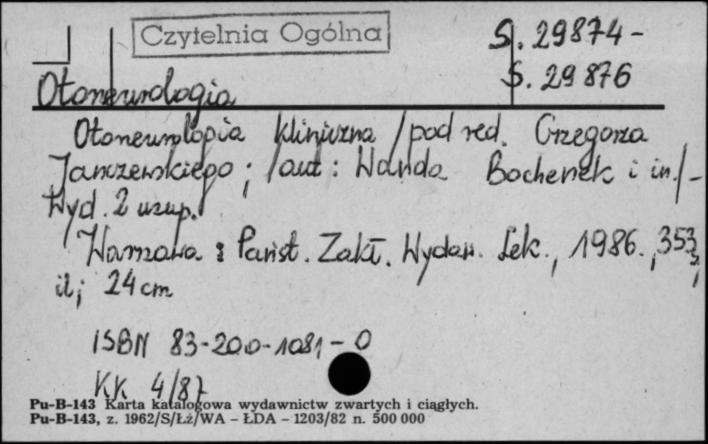 Czytelnia Ogólna
S. 29874-
S. 29876
Otoneurologia
Otoneurologia kliniczna / pod red. Grzegorza
Janczewskiego ; /aut : Wanda Bochenek i in./-
Wyd. 2 uzup.
Warszawa : Państ. Zakł. Wydaw. Lek., 1986., 353 s,
il; 24 cm
ISBN 83-200-1081-0
KK 4/87
Pu-B-143 Karta katalogowa wydawnictw zwartych i ciągłych.
Pu-B-143, z. 1962/S/Łż/WA – ŁDA – 1203/82 n. 500 000